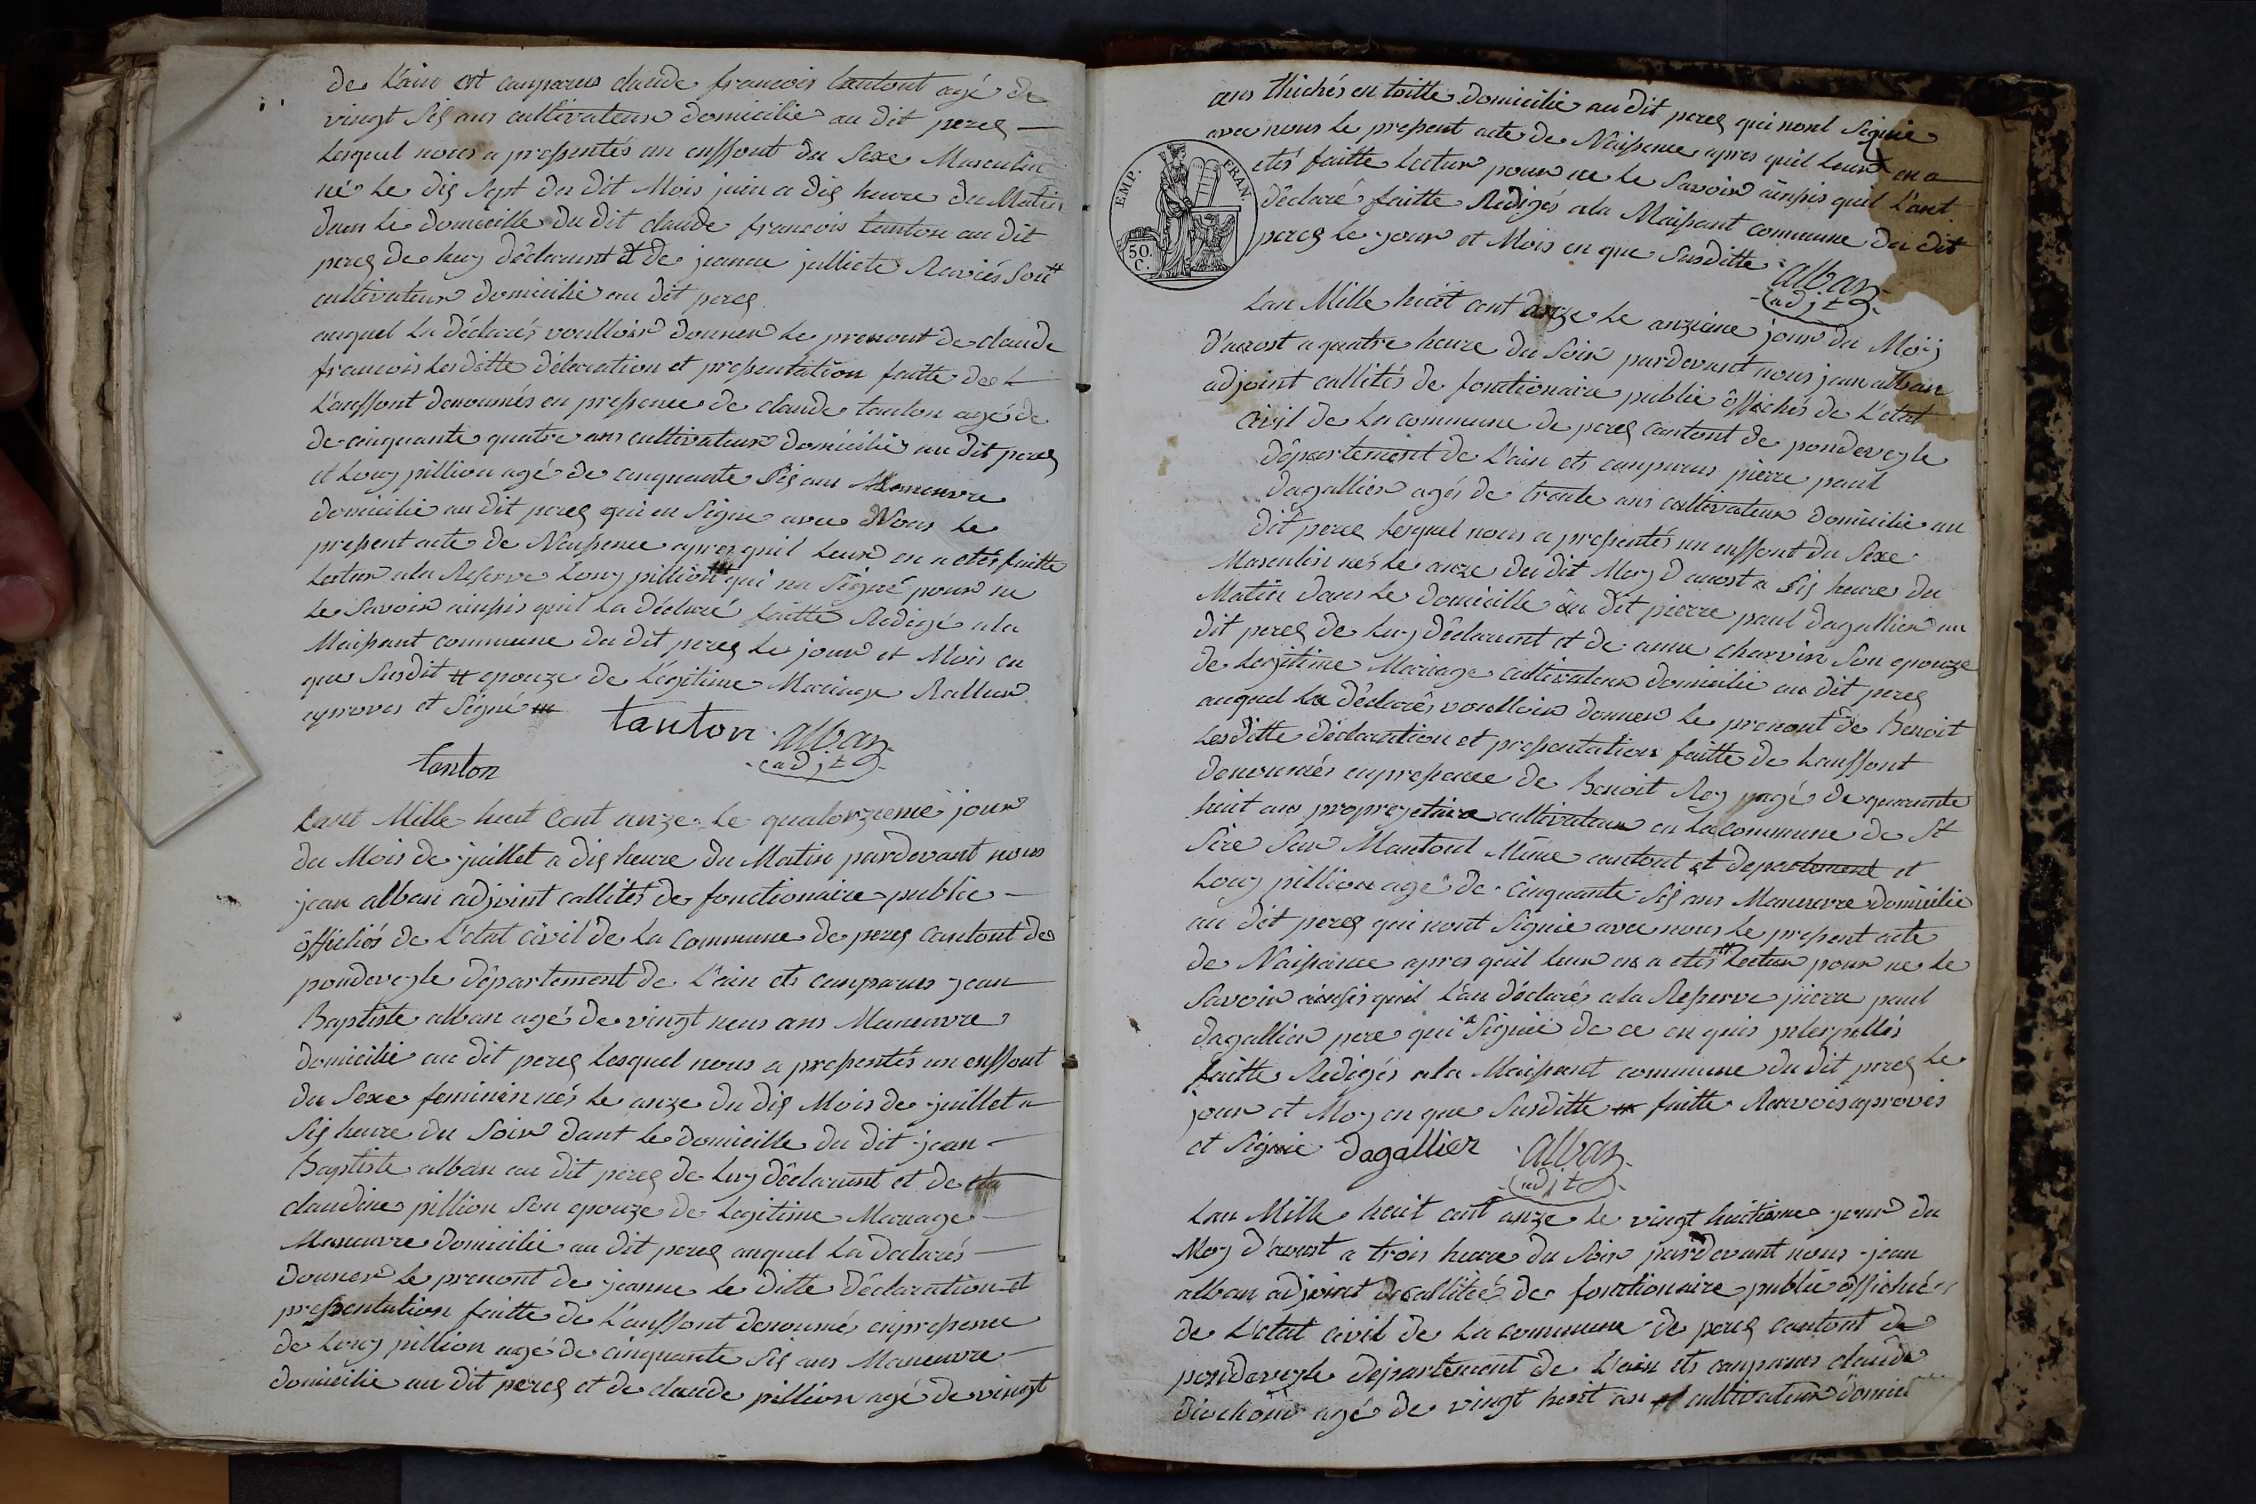 de L'ain est conparus claude francois tantont agé de
vingt Sis ans cultivateur domicilie au dit perex
Lesquel nous a pressentés un enffont du Sexe Masculin
né Le dis Sept du dit Mois juin a dis heure du Matin
dans Le domicille du dit claude francois tanton au dit
perex de luy déclarant et de jeanne julliete Raviés Son #
cultivateur domicilie au dit perex
auquel La déclarés voulloir donner Le prenont de claude
francois Lesditte déclaration et pressentation faitte de
L'anffont denoumés en pressence de claude tanton agé de
de cinquante quatre ans cultivateur domicilié au dit perex
et Louy pillion agé de cinquante Sis ans Maneuvre
domicilie au dit perex qui en Signe avec Nous Le
pressent acte de Naissence apres quil Leur en a etés faitte
Lectur ala Reserve Louy pillion qui na Signé pour ne
Le Savoir ainssis quil La déclaré faitte Redigé ala
Maissant commune du dit perex Le jour et Mois en
que Susdit # epouze de Légitime Mariage Rallur
aprovés et Signé
tanton alban
adjt
tanton
Lant Mille huit Cent onze Le quatorzieme jour
du Mois de juillet a dis heure du Matin pardevant nous
jean alban adjoint callités de fonctionaire public
officiés de L'etat civil de La Commune de perex Cantont de
pondeveyle département de L'ain ets conparus jean
Baptiste alban agé de vingt neus ans Maneuvre
domicilie au dit perex Lesquel nous a pressentés un enffont
du Sexe feminin nés Le onze du dis Mois de juillet a
Sis heure du Soir dant Le domicille du dit jean
Baptiste alban au dit perex de Luy déclarant et de
claudine pillion Son epouze de Legitime Mariage
Maneuvre domicilie au dit perex auquel La declarés
donner Le prenont de jeanne Le ditte déclaration et
pressentation faitte de L'anffont denoumés enpressence
de Louy pillion agé de cinquante Sis ans Maneuvre
domicilie au dit perex et de claude pillion agé de vingt
ans thichés en toille domicilie au dit perex qui nont Signie
avec nous Le pressent acte de Naissence apres quil Leur en a
etés faitte Lectur pour ne Le Savoir ainssis quil L'ant
déclaré faitte Redigés ala Maissant commune du dit
perex Le jour et Mois en que Susditte
EMP. FRAN.
50.
C.
alban
adjt
Lan Mille huit cent onze Le onzieme jour du Moy
d'auost a quatre heure du Soir pardevant nous jean alban
adjoint callités de fonctionaire public offichés de L'etat
Civil de La commune de perex Cantont de pondeveyle
département de L'ain ets conparus pierre paul
dagallier agés de trante ans cultivateur domicilie au
dit perex Lesquel nous a pressentés un enffont du Sexe
Masculin nés Le onze du dit Moy d auost a Sis heure du
Matin dans Le domicille du dit pierre paul dagallier au
dit perex de Luy déclarant et de anne charvin Son epouze
de Legitime Mariage cultivateur domicilie au dit perex
auquel La déclarés voulloir donner Le prenont de Benoit
Lesditte déclaration et pressentation faitte de Lanffont
denoumés enpressence de Benoit Roy agé de quarante
huit ans propreyetaire cultivateur en La commune de St
Sire Sur Mantont Même cantont et departement et
Louy pillion agé de Cinquante Sis ans Maneuvre domicilie
au dit perex qui nont Signie avec nous Le pressent acte
de Naissence apres quil Leur en a etés # Lectur pour ne Le
Savoir ainssis quil L'an déclarés ala Reserve pierre paul
dagallier pere qui a Signié de ce en quis jnterpellés
faitte Redigés ala Maissant commune du dit perex Le
jour et Moy en que Susditte # faitte Ranvois aprovés
et Signie dagallier alban
adjt
Lan Mille huit cent onze Le vingt huitieme jour du
Moy d'auost a trois heure du Soir pardevant nous jean
alban adjoint de callitée de fonctionaire public offichiés
de L'etat civil de La commune de perex cantont de
pondeveyle département de L'ain ets conparus claude
diochoin agé de vingt huit an cultivateur domici